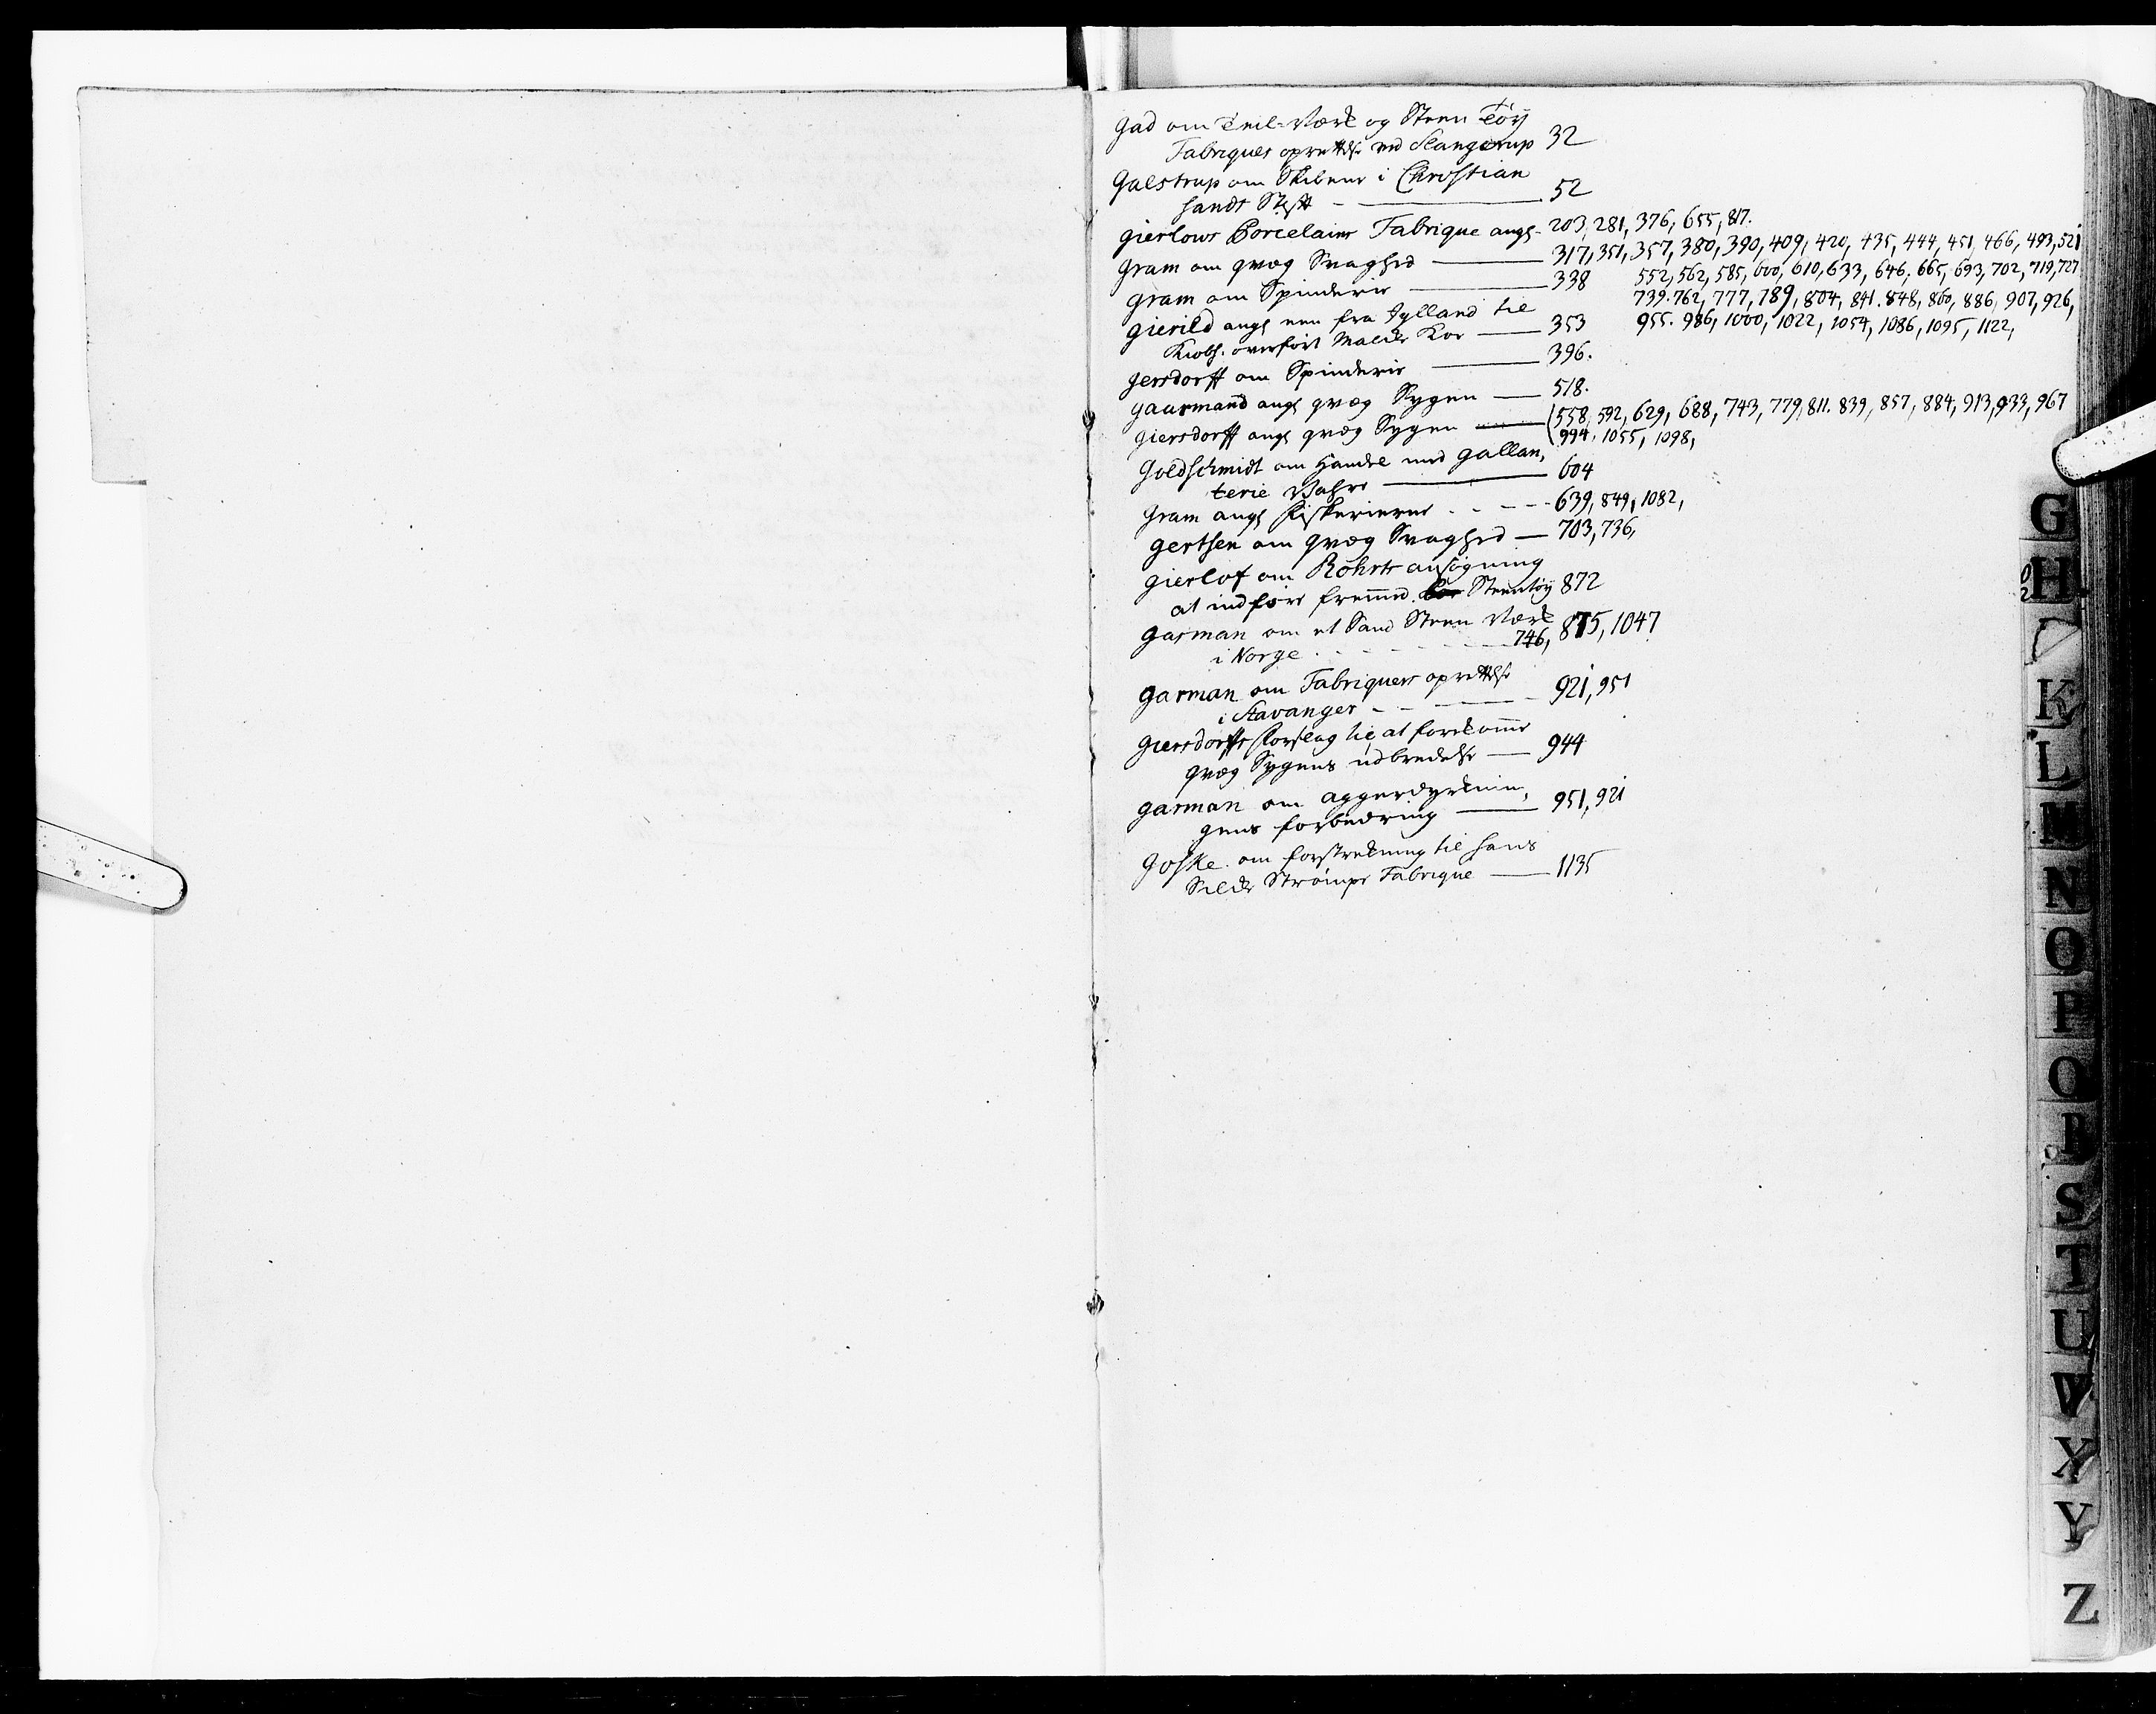 Gad om Teil-Værk og Steen Töy
Fabriques oprettelse ved Slangerup 32
Galstrup om Skibene i Christian
sandt Stift - 52
Gierlows Porcelains Fabrique angl 203, 281, 376, 655, 817.
Gram om qvæg Svaghed 317, 351, 357, 380, 390, 409, 420, 435, 444, 451, 466, 493, 521
552, 562, 585, 600, 610, 633, 646, 665, 693, 702, 719, 727
Gram om Spinderie 338
739. 762, 777, 789, 804, 841. 848, 860, 886, 907, 926,
Gierild angl een fra Jylland til
955. 986, 1000, 1022, 1054, 1086, 1095, 1122,
Kiobh. overfört Malcke Koe 353
Gersdorff om Spinderie 396.
Gaarmand angl qvæg Sygen 518.
Giersdorff angl qvæg Sygen (558, 592, 629, 688, 743, 779, 811. 839, 857, 884, 913, 933, 967
994. 1055, 1098,
Goldschmidt om Handel med Gallan,
terie Vahre 604
Gram angl Fiskerierne 639, 849, 1082,
Gertsen om qvæg Svaghed 703, 736,
Gierlof om Röhrts ansögning
at indföre fremmed Steentöy 872
Garman om et Sand Steen Værk
i Norge 746, 875, 1047
Garman om Fabriquers oprettelse
i Stavanger 921, 951
Giersdorffs Forslag til at forekomme
qvæg Sygens udbredelse 944
Garman om aggerdyrknin,
gens forbedring 951, 921
Goske om forstrekning til hans
Silke Strömpe Fabrique 1135
G
H
K
L
M
N
O
P
Q
R
S
T
U
W
X
Y
Z